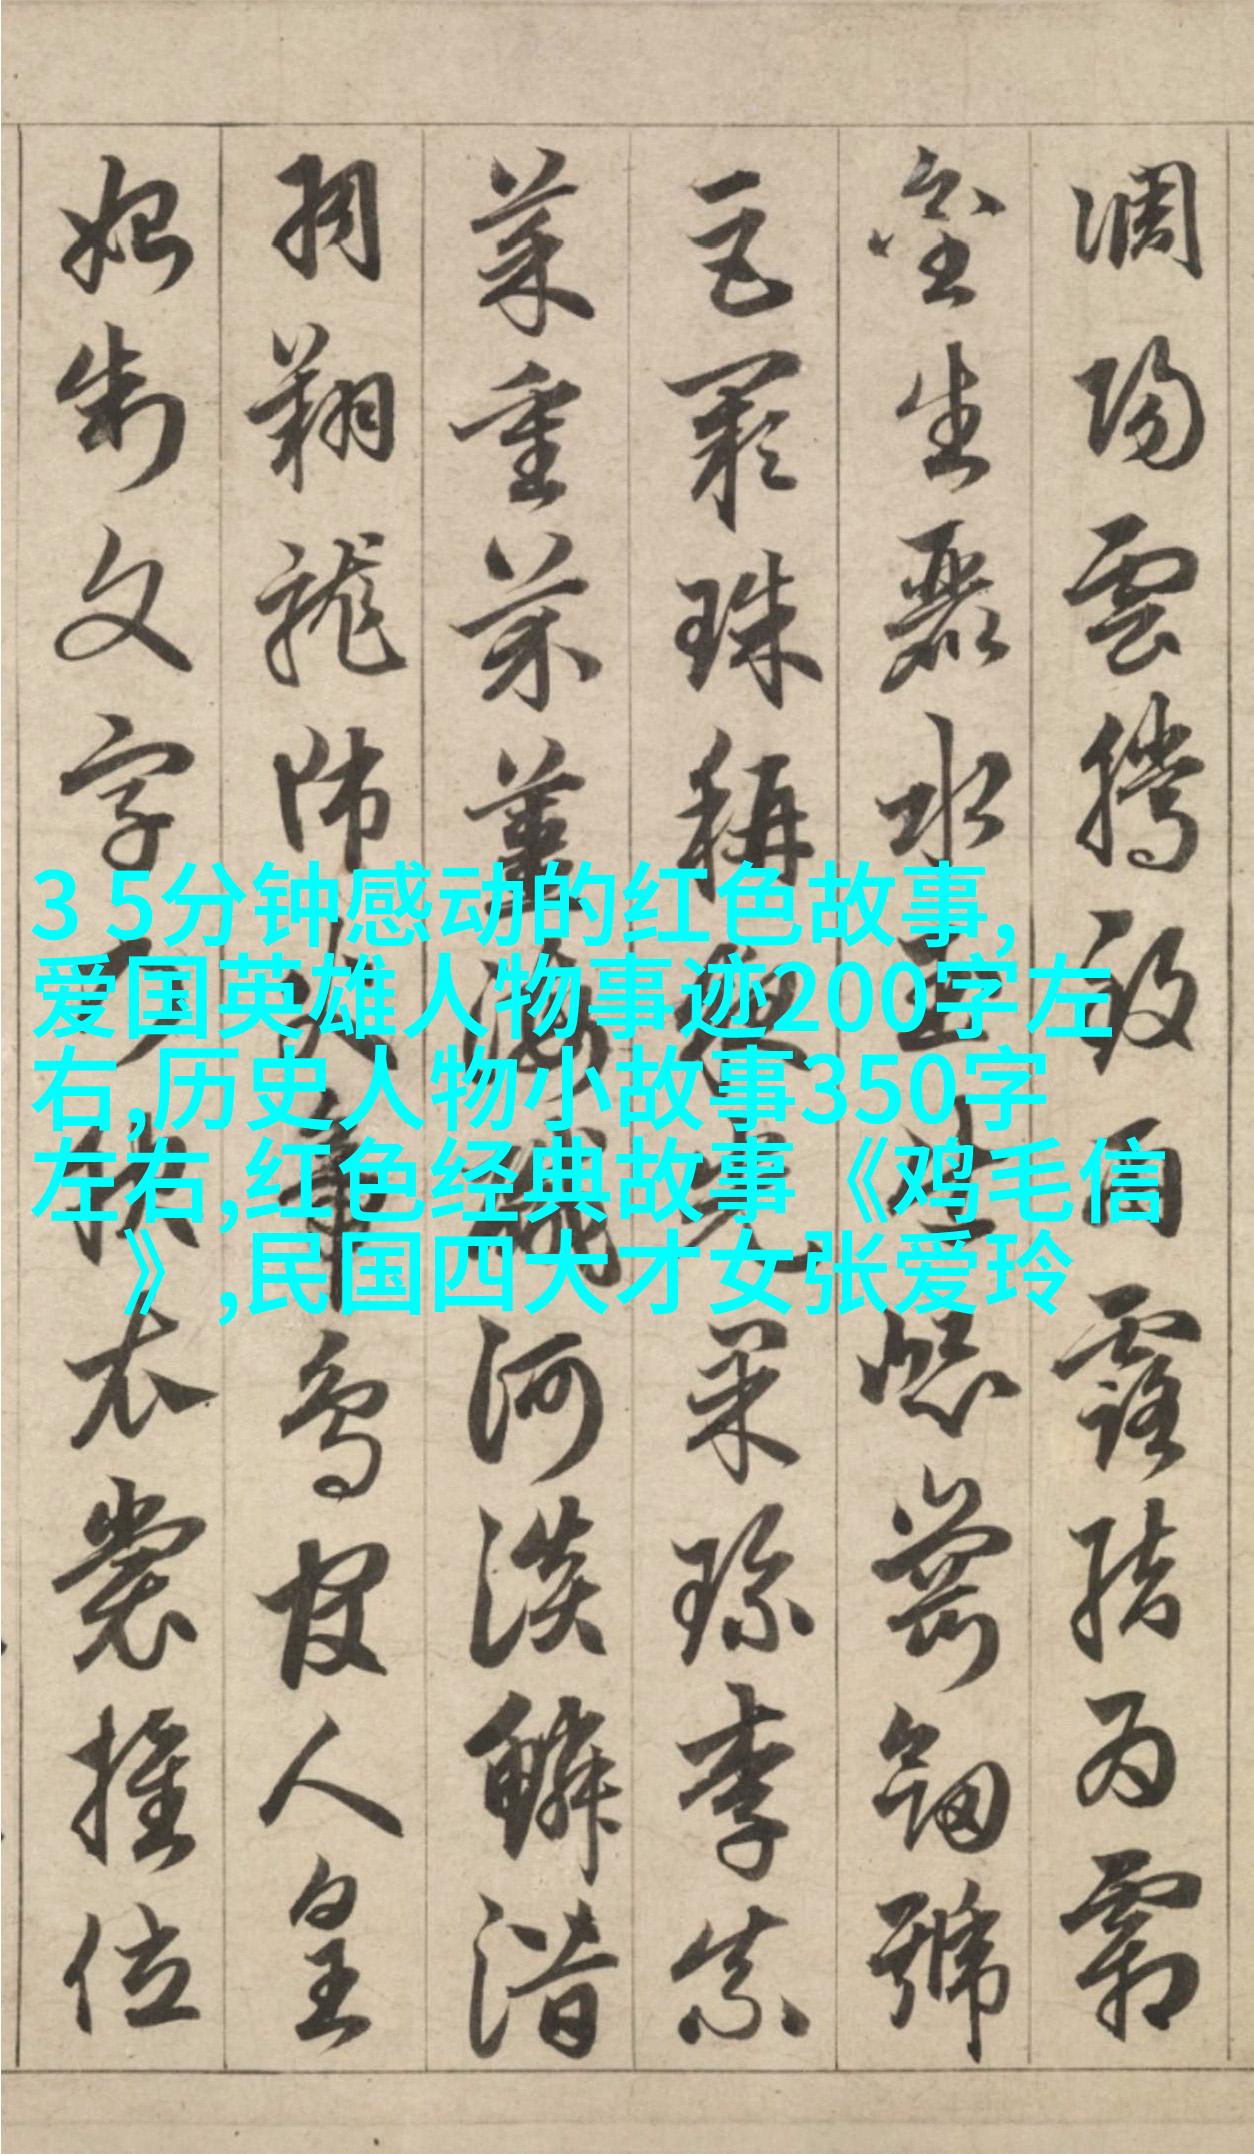 3 5分钟感动的红色故事,
爱国英雄人物事迹200字左
右,历史人物小故事350字
左右,红色经典故事《鸡毛信
》,民国四大才女张爱玲
調陽雲騰致雨露結為霜
金生麗水玉出崐崗劒號
巨闕珠稱夜光果珍李柰
菜重芥薑海鹹河淡鱗潛
羽翔龍師火帝鳥官人皇
始制文字乃服衣裳推位